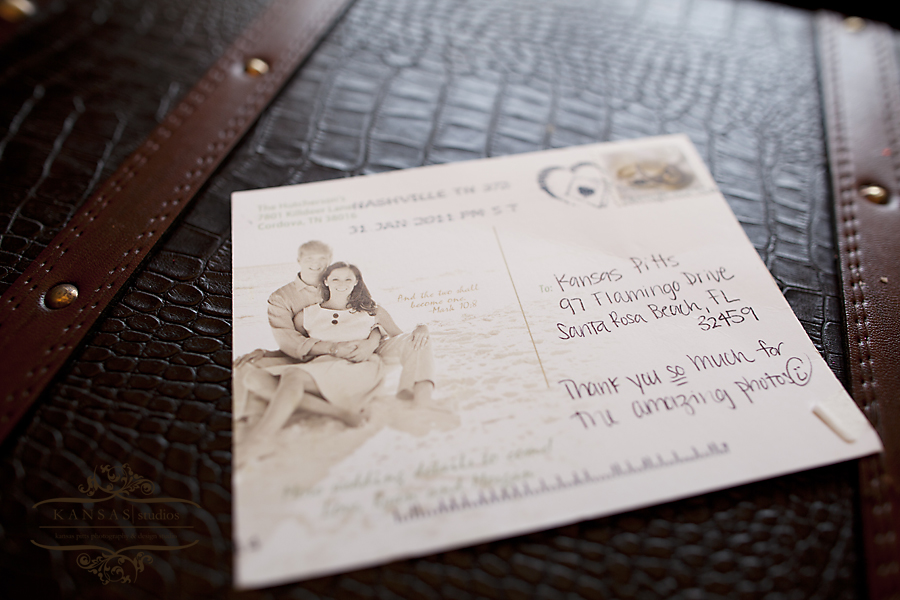 The Hutcherson's
7801 Killdee Lane
Cordova, TN 38016
NASHVILLE TN 372
31 JAN 2011 PM 5 T
And the two shall
become one.
-Mark 10:8
To:
Kansas Pitts
97 Flamingo Drive
Santa Rosa Beach, FL
32459
Thank you so much for
the amazing photos
KANSAS studios